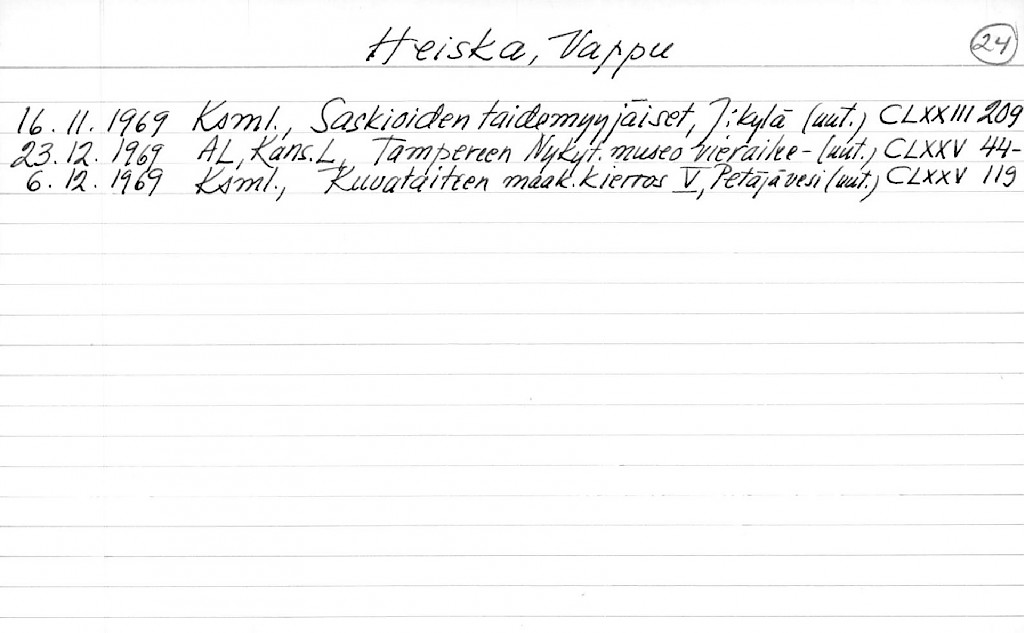 Heiska, Vappu 24
16. 11. 1969 Ksml., Saskioiden taidemyyjäiset, J:kylä (uut.) CLXXIII 209
23. 12. 1969 AL, Kans.L, Tampereen Nykyt. museo vierailee - (uut.) CLXXV 44-
6. 12. 1969 Ksml., Kuvataiteen maak. kierros V, Petäjävesi (uut.) CLXXV 119